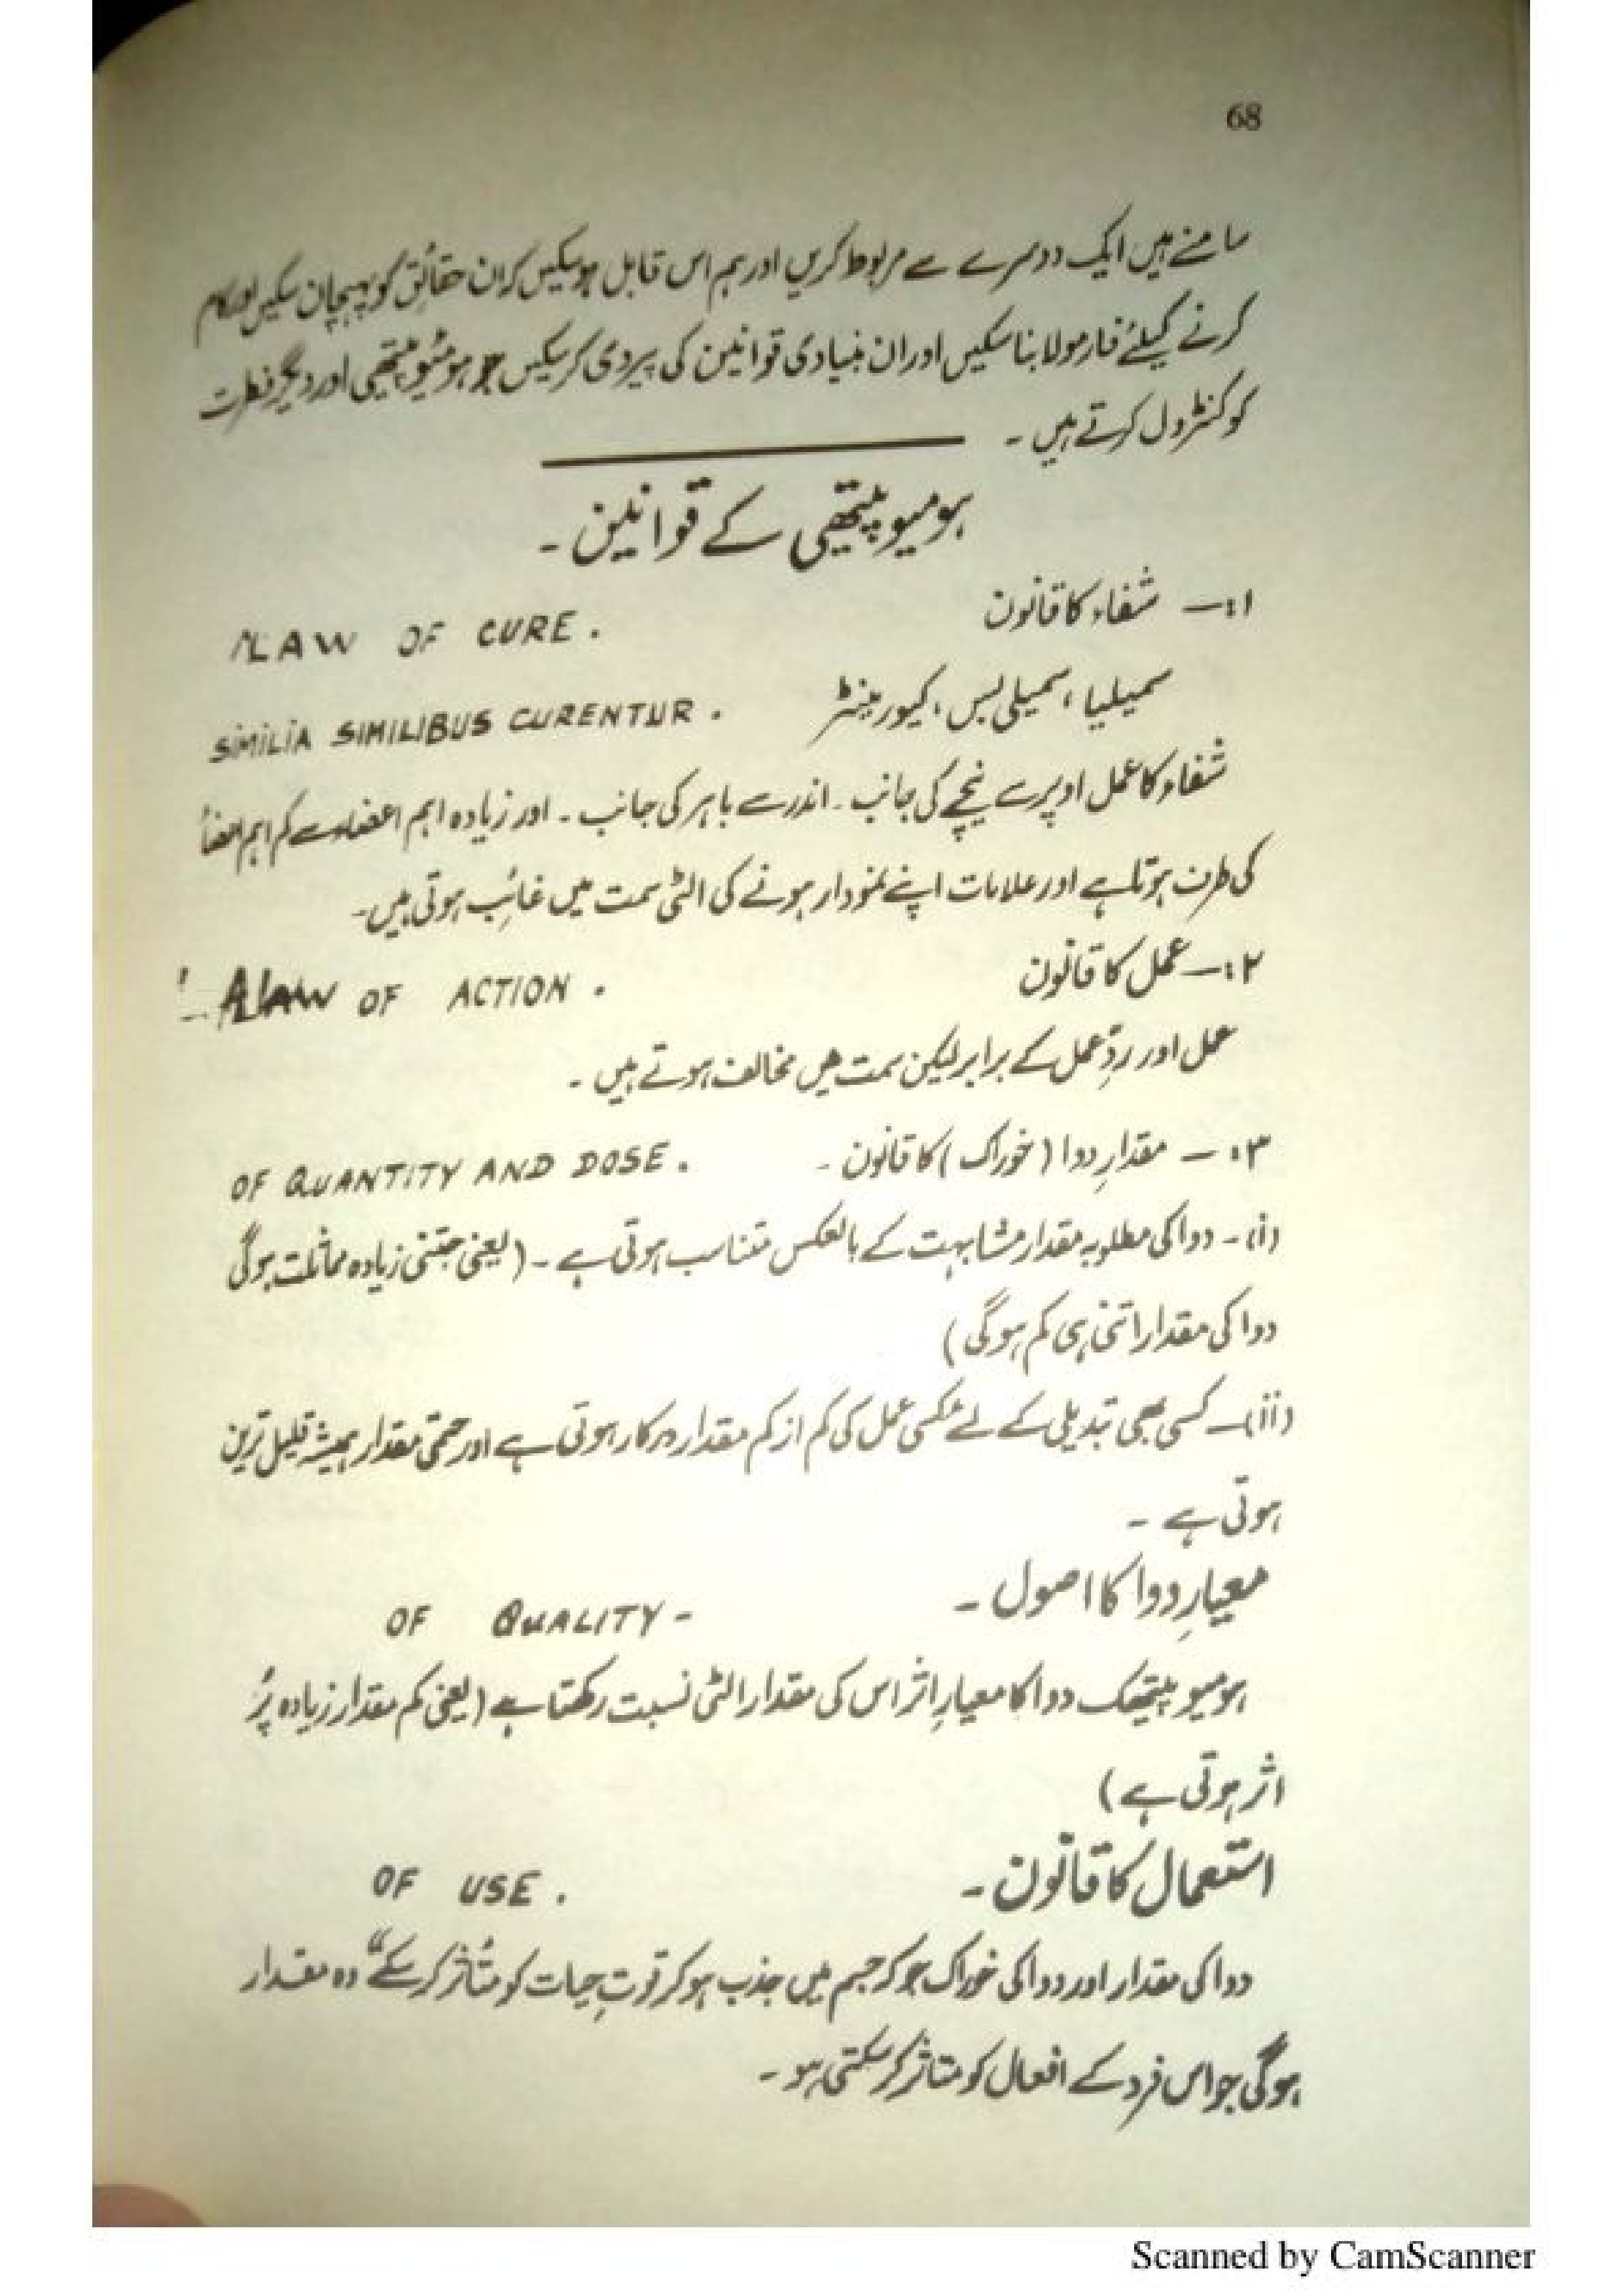 68
سامنے ہیں ایک دوسرے سے مربوط کریں اور ہم اس قابل ہو سکیں کہ ان حقائق کو پہچان سکیں اور کام
کرنے کیلئے فارمولا بنا سکیں اور ان بنیادی قوانین کی پیروی کر سکیں جو ہومئیوپیتھی اور دیگر فطرت
کو کنٹرول کرتے ہیں ۔
ہومیوپیتھی کے قوانین ۔
۱:— شفاء کا قانون LAW OF CURE .
سمیلیا ، سمیلی بس ، کیورینٹر SIMILIA SIMILIBUS CURENTUR .
شفاء کا عمل اوپر سے نیچے کی جانب ۔ اندر سے باہر کی جانب ۔ اور زیادہ اہم اعضاء سے کم اہم اعضاً
کی طرف ہوتا ہے اور علامات اپنے نمودار ہونے کی الٹی سمت میں غائب ہوتی ہیں ۔
۲:— عمل کا قانون LAW OF ACTION .
عمل اور ردِّ عمل کے برابر لیکن سمت میں مخالف ہوتے ہیں ۔
۳:— مقدارِ دوا (خوراک) کا قانون ۔ OF QUANTITY AND DOSE .
(i)۔ دوا کی مطلوبہ مقدار مشابہت کے بالعکس متناسب ہوتی ہے ۔ (یعنی جتنی زیادہ مماثلت ہوگی
دوا کی مقدار اتنی ہی کم ہوگی)
(ii)— کسی بھی تبدیلی کے لئے عکسی عمل کی کم از کم مقدار درکار ہوتی ہے اور حتمی مقدار ہمیشہ قلیل ترین
ہوتی ہے ۔
معیارِ دوا کا اصول ۔ OF QUALITY -
ہومیوپیتھک دوا کا معیارِ اثر اس کی مقدار الٹی نسبت رکھتا ہے (یعنی کم مقدار زیادہ پُر
اثر ہوتی ہے)
استعمال کا قانون ۔ OF USE .
دوا کی مقدار اور دوا کی خوراک جو کہ جسم میں جذب ہو کر قوتِ حیات کو متأثر کر سکے“ وہ مقدار
ہوگی جو اس فرد کے افعال کو متاثر کر سکتی ہو ۔
Scanned by CamScanner